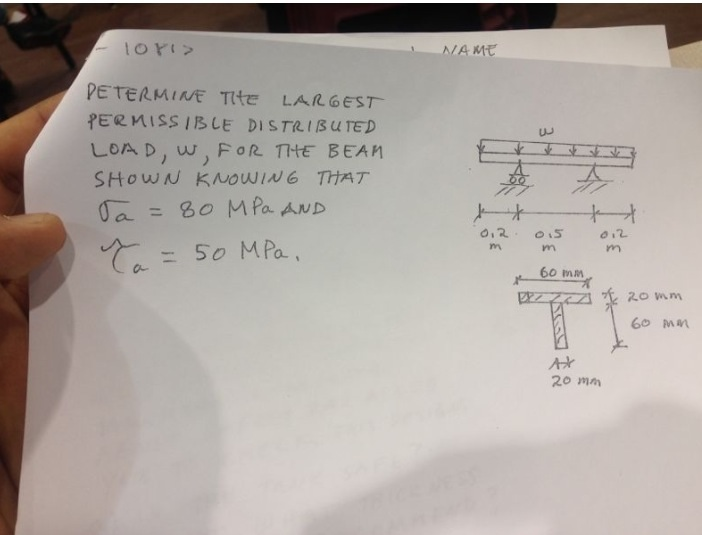 NAME
DETERMINE THE LARGEST
PERMISSIBLE DISTRIBUTED
LOAD, W, FOR THE BEAM
SHOWN KNOWING THAT
σa = 80 MPa AND
τa = 50 MPa.
w
0,2 0,5 0,2
m m m
60 mm
20 mm
60 mm
20 mm